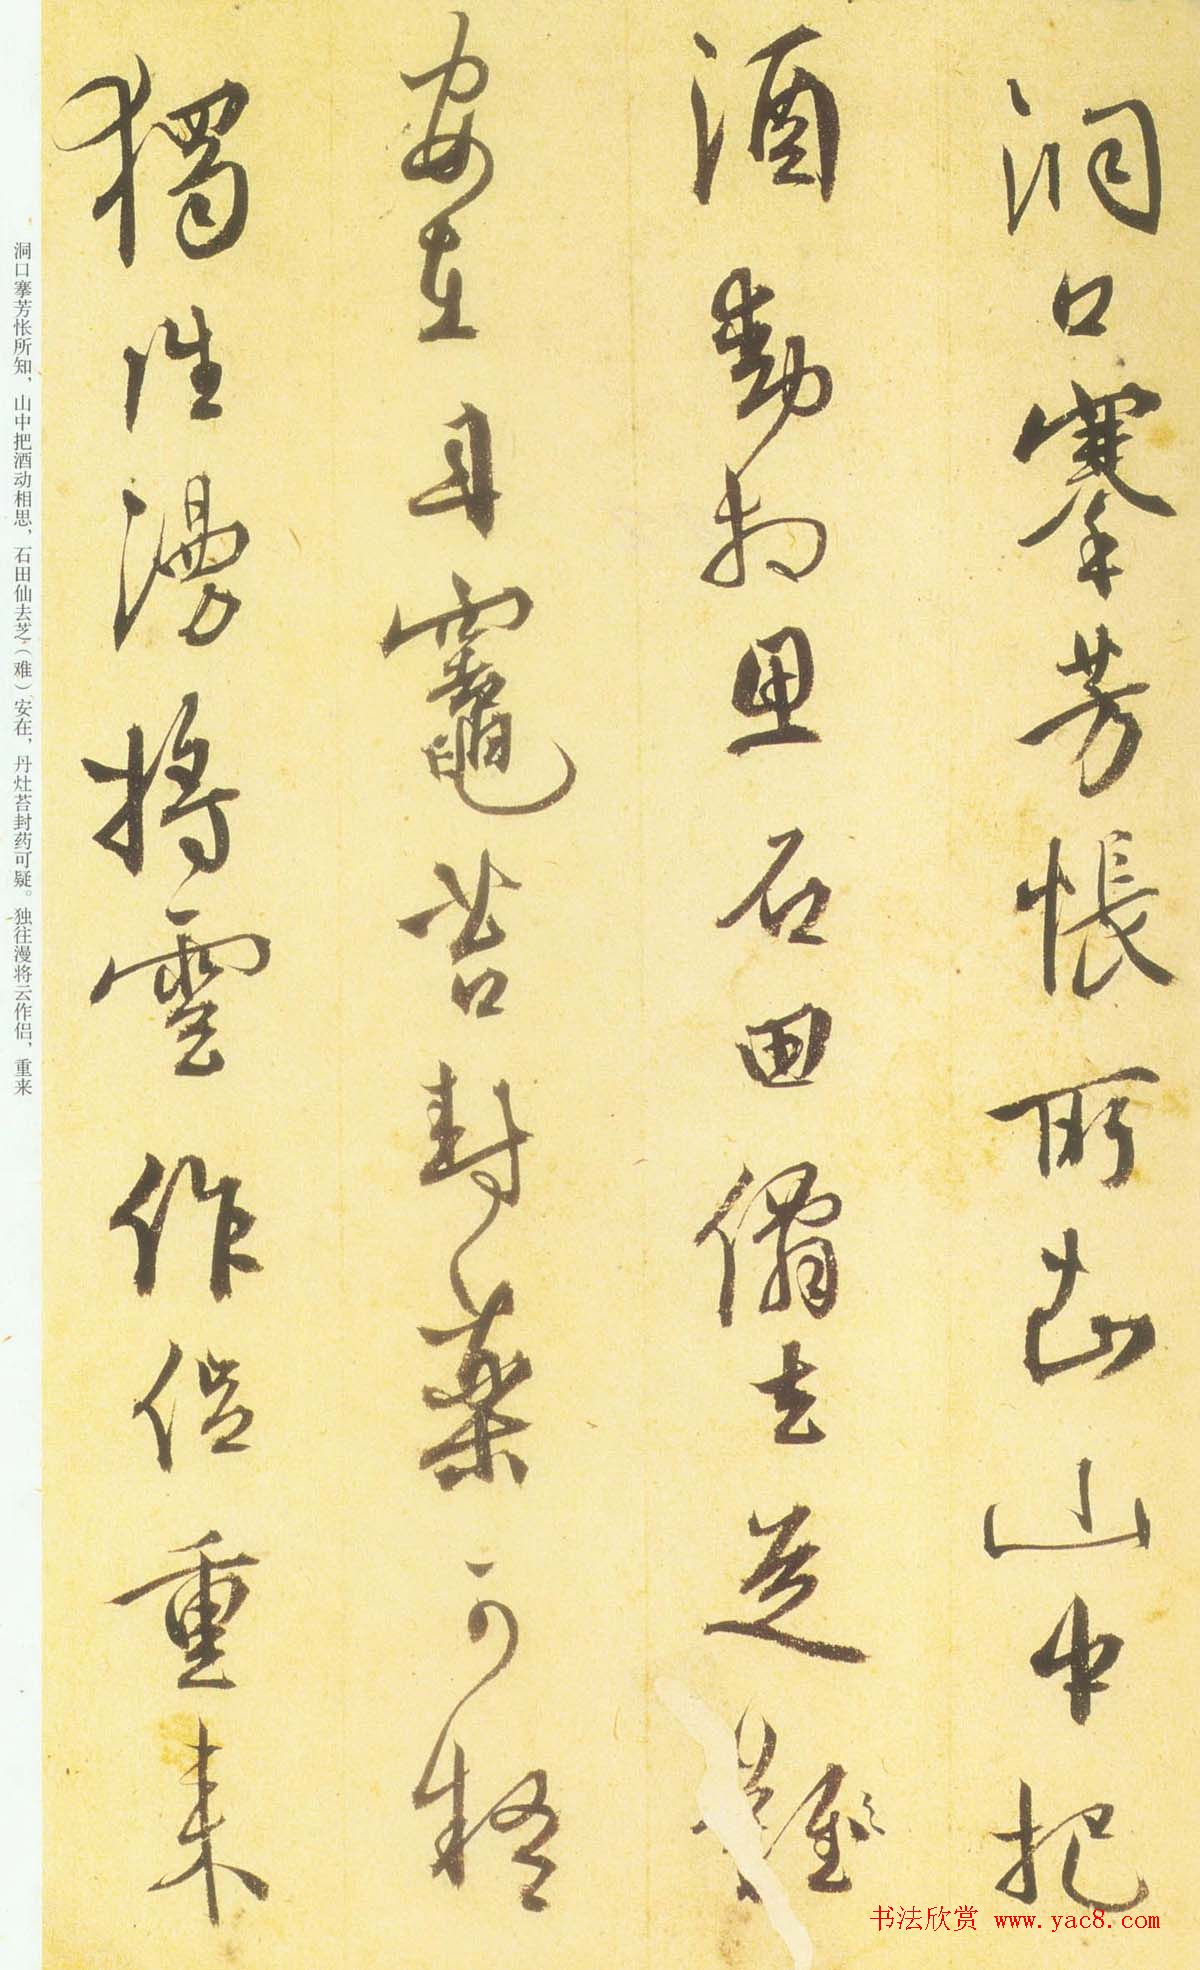 洞口搴芳悵所知山中把
酒動相思石田僊去芝難
安在丹竈苔封藥可疑
獨往漫將雲作侣重来
洞口搴芳怅所知，山中把酒动相思，石田仙去芝（难）安在，丹灶苔封药可疑。独往漫将云作侣，重来
书法欣赏 www.yac8.com